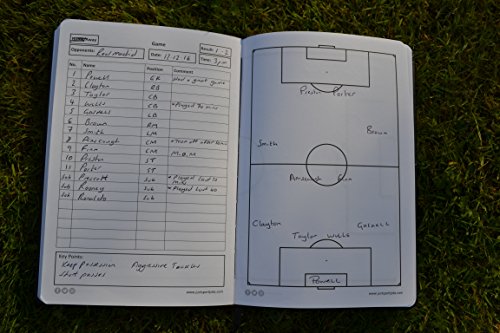 Game
Opponents: Real Madrid Date: 11.12.16 Result: 1-2
Time: 3pm
No. Name Position Comment
1 Powell GK Had a great game
2 Clayton RB
3 Taylor CB
4 Wells CB * Played 70 mins
5 Gaskell LB
6 Brown RM
7 Smith LM
8 Ainscough CM
9 Finn CM M.O.M
10 Preston ST
11 Porter ST
Sub Prescott Sub * Played last 20 mins
Sub Rooney Sub * Played last 20
Sub Ronaldo Sub
Key Points:
Keep Possession Aggressive Tackles
Short passes
Preston Porter
Brown
Smith
Ainscough Finn
Clayton Gaskell
Taylor Wells
Powell